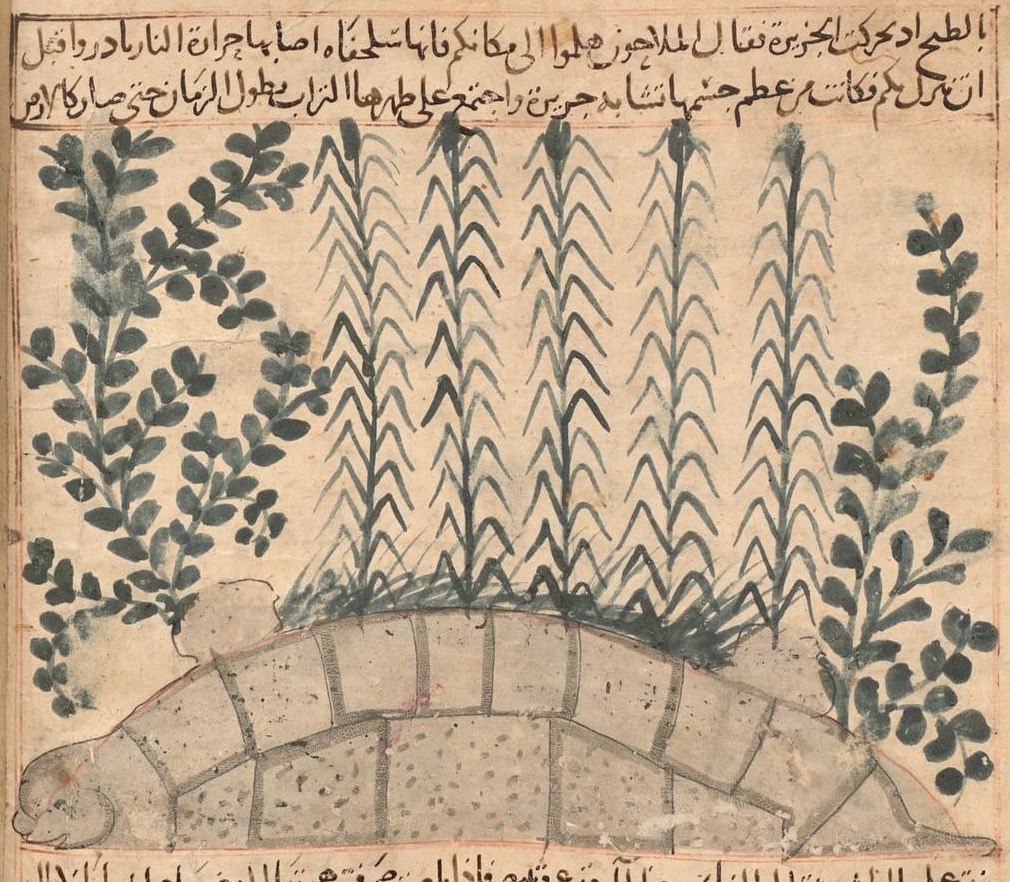 بالطبخ اذ تحركت الجزيرة فقال الملاحون هلموا الى مكانكم فانها سلحفاه اصابها حرارة النار بادروا قبل
ان تنزل بكم فكانت من عظم جسمها تشابه جزيرة واجتمع على ظهرها التراب بطول الزمان حتى صار كالارض